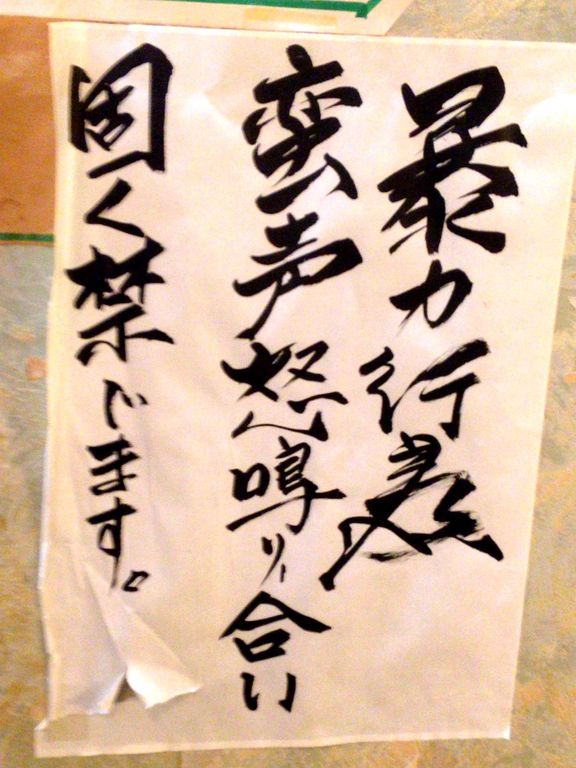 暴力行為
蛮声怒鳴り合い
固く禁じます。